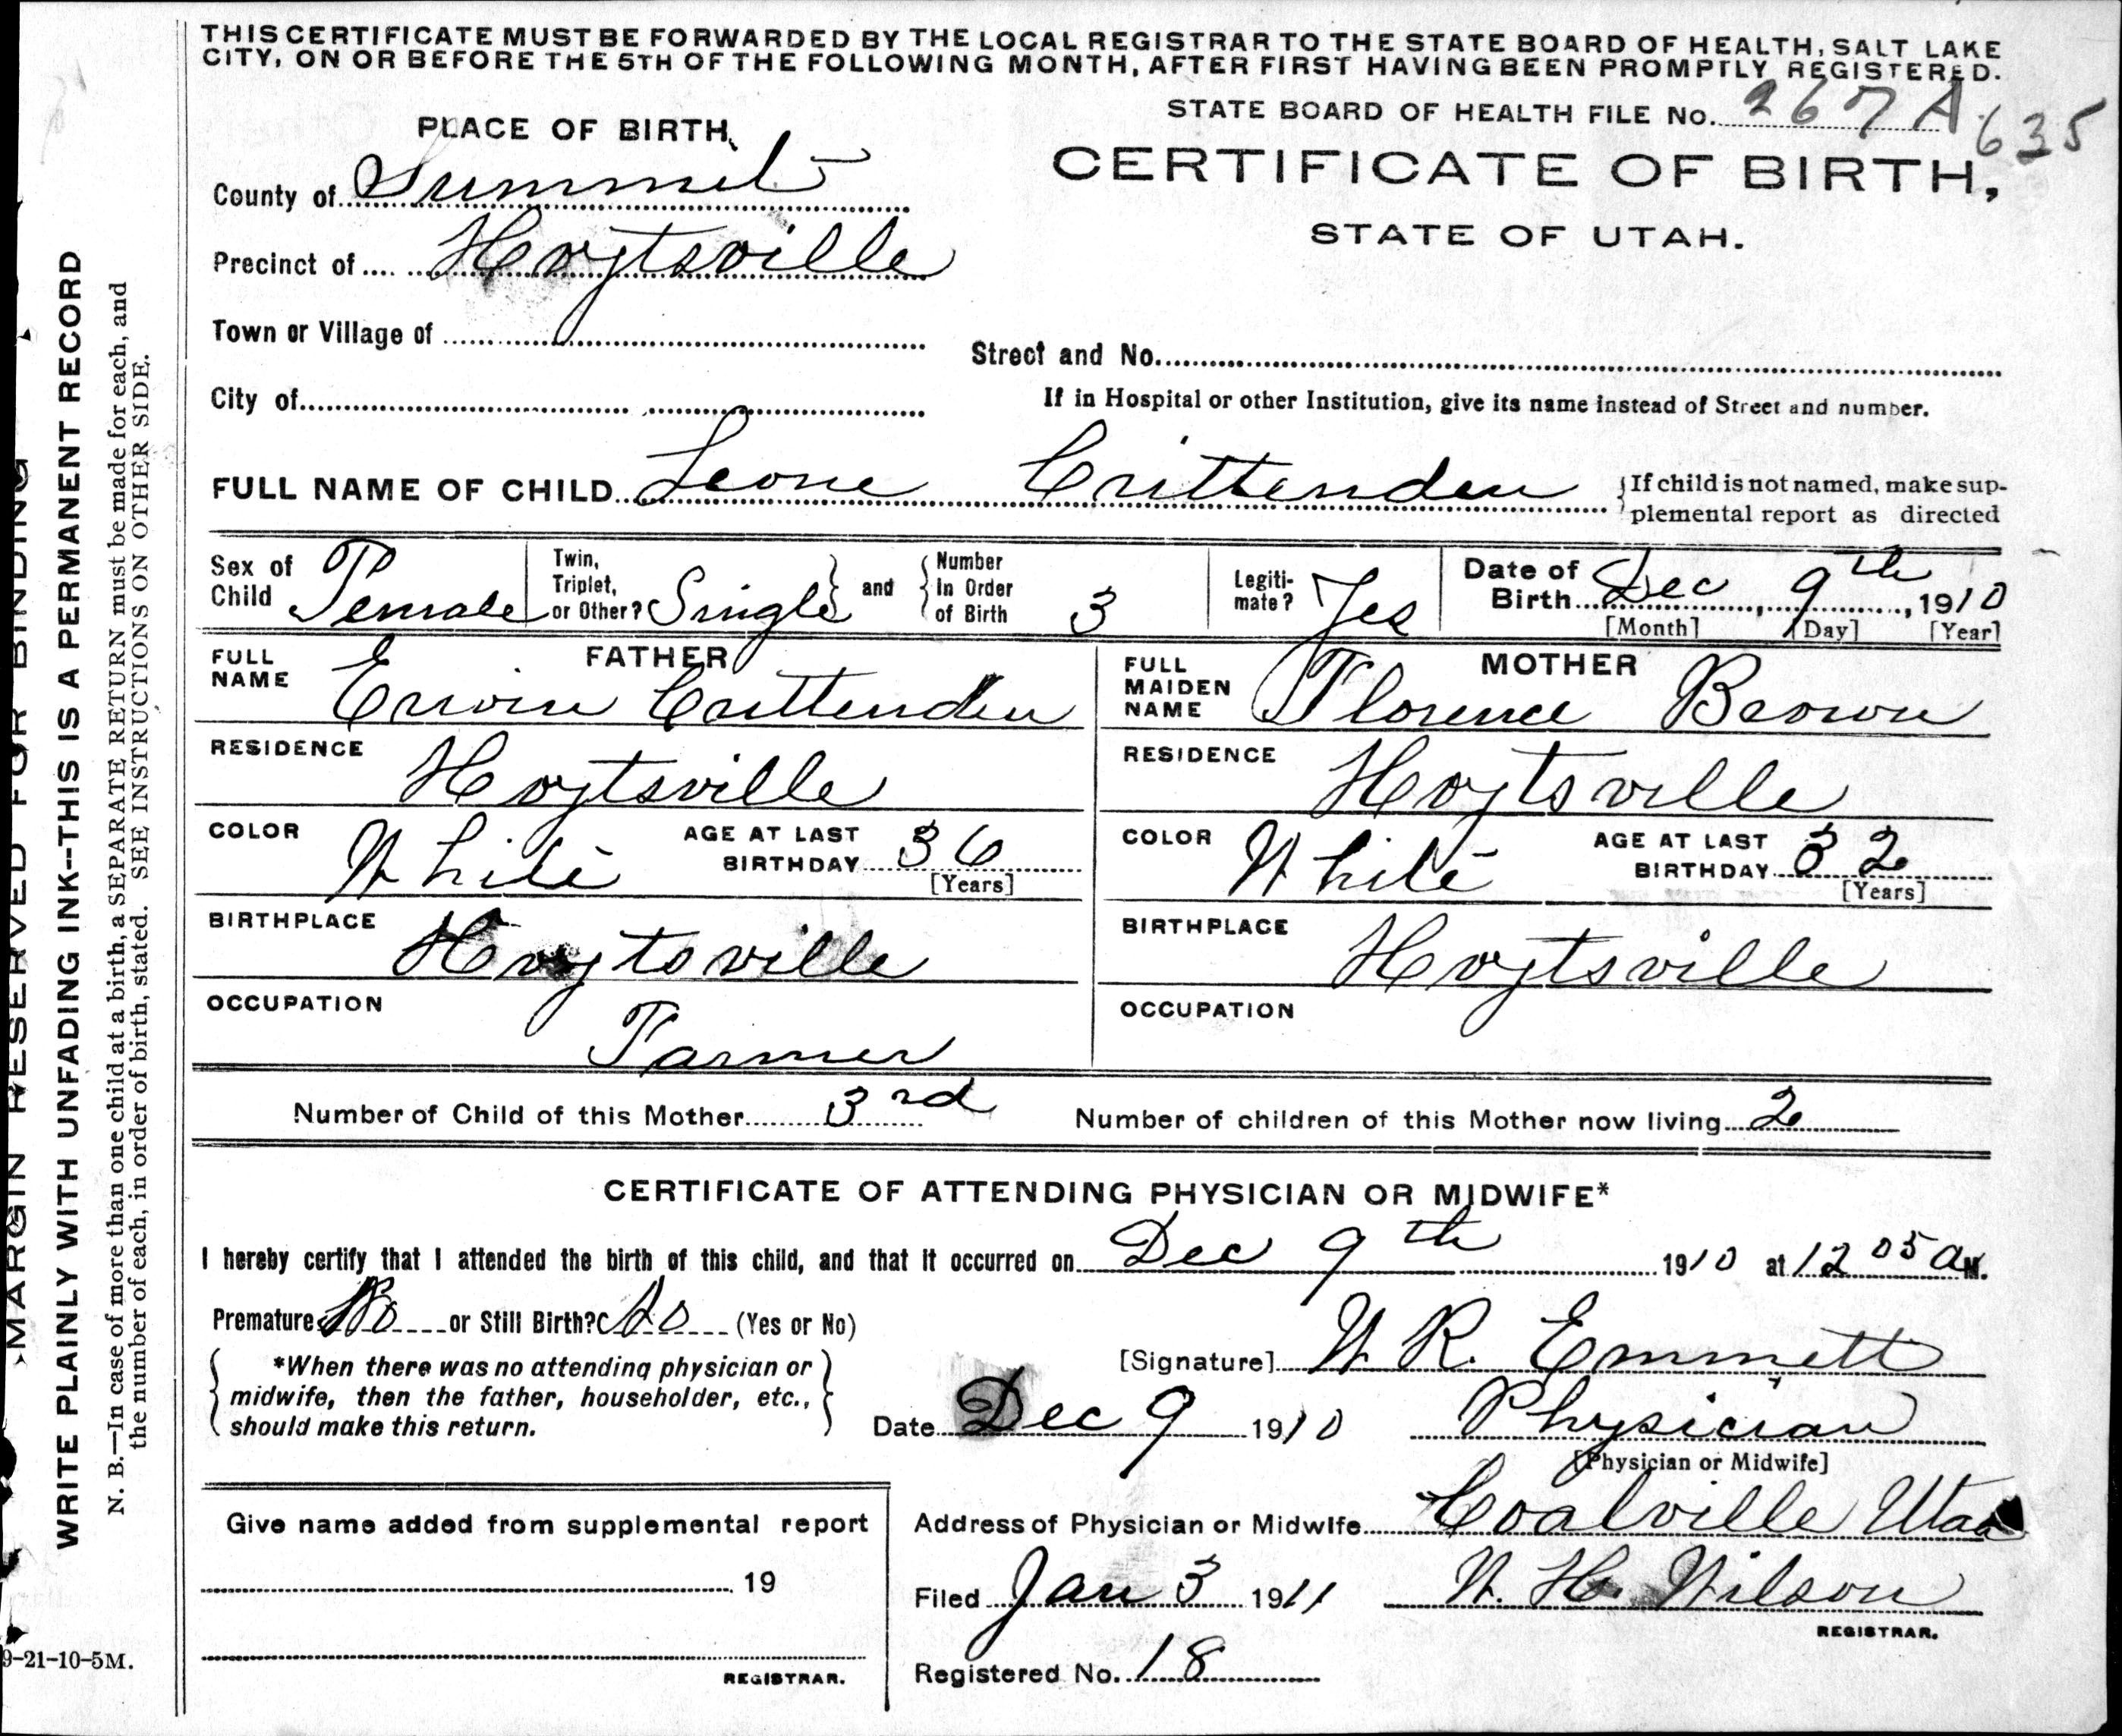 THIS CERTIFICATE MUST BE FORWARDED BY THE LOCAL REGISTRAR TO THE STATE BOARD OF HEALTH, SALT LAKE
CITY, ON OR BEFORE THE 5TH OF THE FOLLOWING MONTH, AFTER FIRST HAVING BEEN PROMPTLY REGISTERED.
STATE BOARD OF HEALTH FILE No. 267 A 635
PLACE OF BIRTH
CERTIFICATE OF BIRTH,
STATE OF UTAH.
County of Summit
Precinct of Hoytsville
Town or Village of
Street and No.
City of
If in Hospital or other Institution, give its name instead of Street and number.
FULL NAME OF CHILD Leone Crittenden
{If child is not named, make sup-
plemental report as directed
Sex of Child Female
Twin, Triplet, or Other? Single } and { Number in Order of Birth 3
Legiti-mate? Yes
Date of Birth Dec, 9th, 1910
[Month] [Day] [Year]
FATHER
FULL NAME Erwin Crittenden
RESIDENCE Hoytsville
COLOR White AGE AT LAST BIRTHDAY 36
[Years]
BIRTHPLACE Hoytsville
OCCUPATION Farmer
MOTHER
FULL MAIDEN NAME Florence Brown
RESIDENCE Hoytsville
COLOR White AGE AT LAST BIRTHDAY 32
[Years]
BIRTHPLACE Hoytsville
OCCUPATION
Number of Child of this Mother 3rd Number of children of this Mother now living 2
CERTIFICATE OF ATTENDING PHYSICIAN OR MIDWIFE*
I hereby certify that I attended the birth of this child, and that it occurred on Dec 9th 1910 at 12 05 a M.
Premature No or Still Birth? No (Yes or No)
*When there was no attending physician or
midwife, then the father, householder, etc.,
should make this return.
[Signature] W. R. Emmett
Date Dec 9 1910 Physician
[Physician or Midwife]
Give name added from supplemental report
19
REGISTRAR.
Address of Physician or Midwife Coalville Utah
Filed Jan 3 1911 W. H. Wilson
REGISTRAR.
Registered No. 18
MARGIN RESERVED FOR BINDING
WRITE PLAINLY WITH UNFADING INK--THIS IS A PERMANENT RECORD
N. B.—In case of more than one child at a birth, a SEPARATE RETURN must be made for each, and
the number of each, in order of birth, stated. SEE INSTRUCTIONS ON OTHER SIDE.
9-21-10-5M.